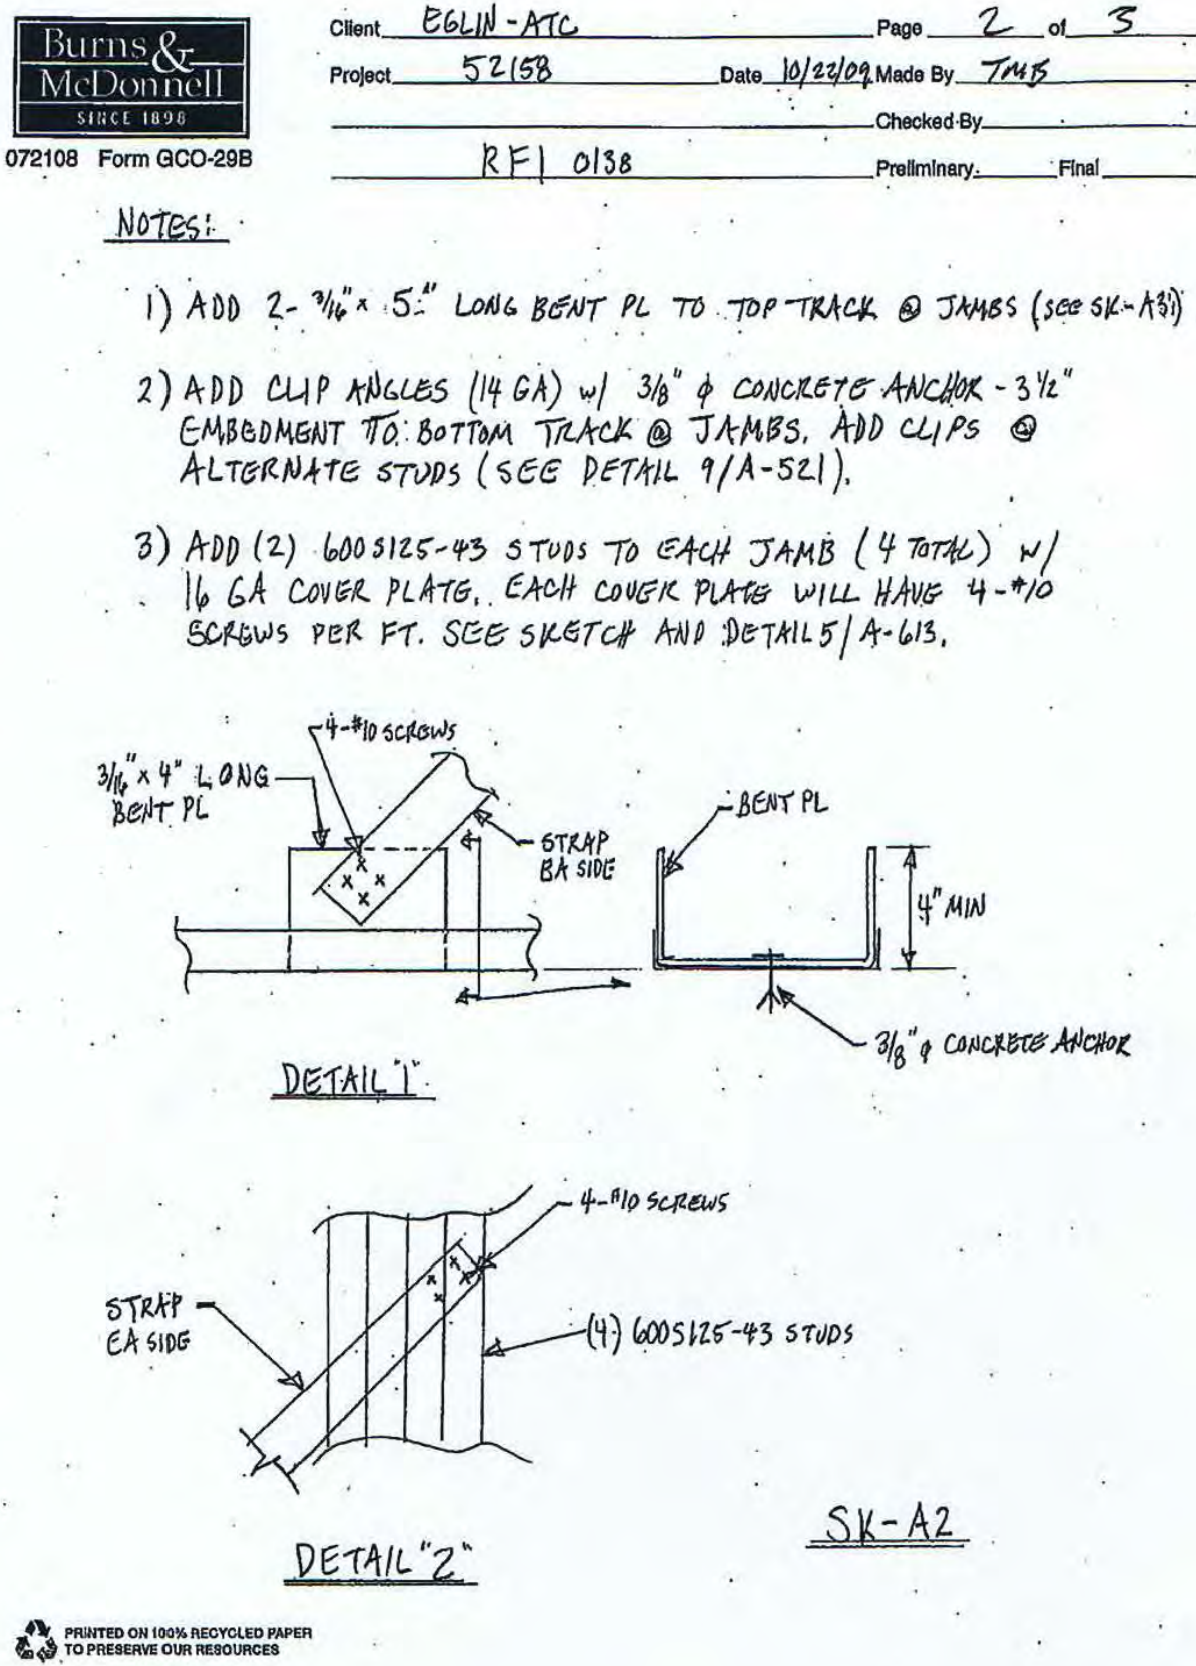 Burns &
McDonnell
SINCE 1898
072108 Form GCO-29B
Client EGLIN-ATC Page 2 of 3
Project 52158 Date 10/22/09 Made By TMB
Checked By
RFI 0138 Preliminary Final
NOTES:
1) ADD 2- 3/16" x 5" LONG BENT PL TO TOP TRACK @ JAMBS (SEE SK-A3)
2) ADD CLIP ANGLES (14 GA) w/ 3/8" φ CONCRETE ANCHOR - 3 1/2"
EMBEDMENT TO BOTTOM TRACK @ JAMBS. ADD CLIPS @
ALTERNATE STUDS (SEE DETAIL 9/A-521).
3) ADD (2) 600S125-43 STUDS TO EACH JAMB (4 TOTAL) W/
16 GA COVER PLATE. EACH COVER PLATE WILL HAVE 4-#10
SCREWS PER FT. SEE SKETCH AND DETAIL 5/A-613.
4-#10 SCREWS
3/16" x 4" LONG
BENT PL
STRAP
EA SIDE
BENT PL
4" MIN
3/8" φ CONCRETE ANCHOR
DETAIL "1"
4-#10 SCREWS
STRAP
EA SIDE
(4) 600S125-43 STUDS
DETAIL "2"
SK-A2
PRINTED ON 100% RECYCLED PAPER
TO PRESERVE OUR RESOURCES